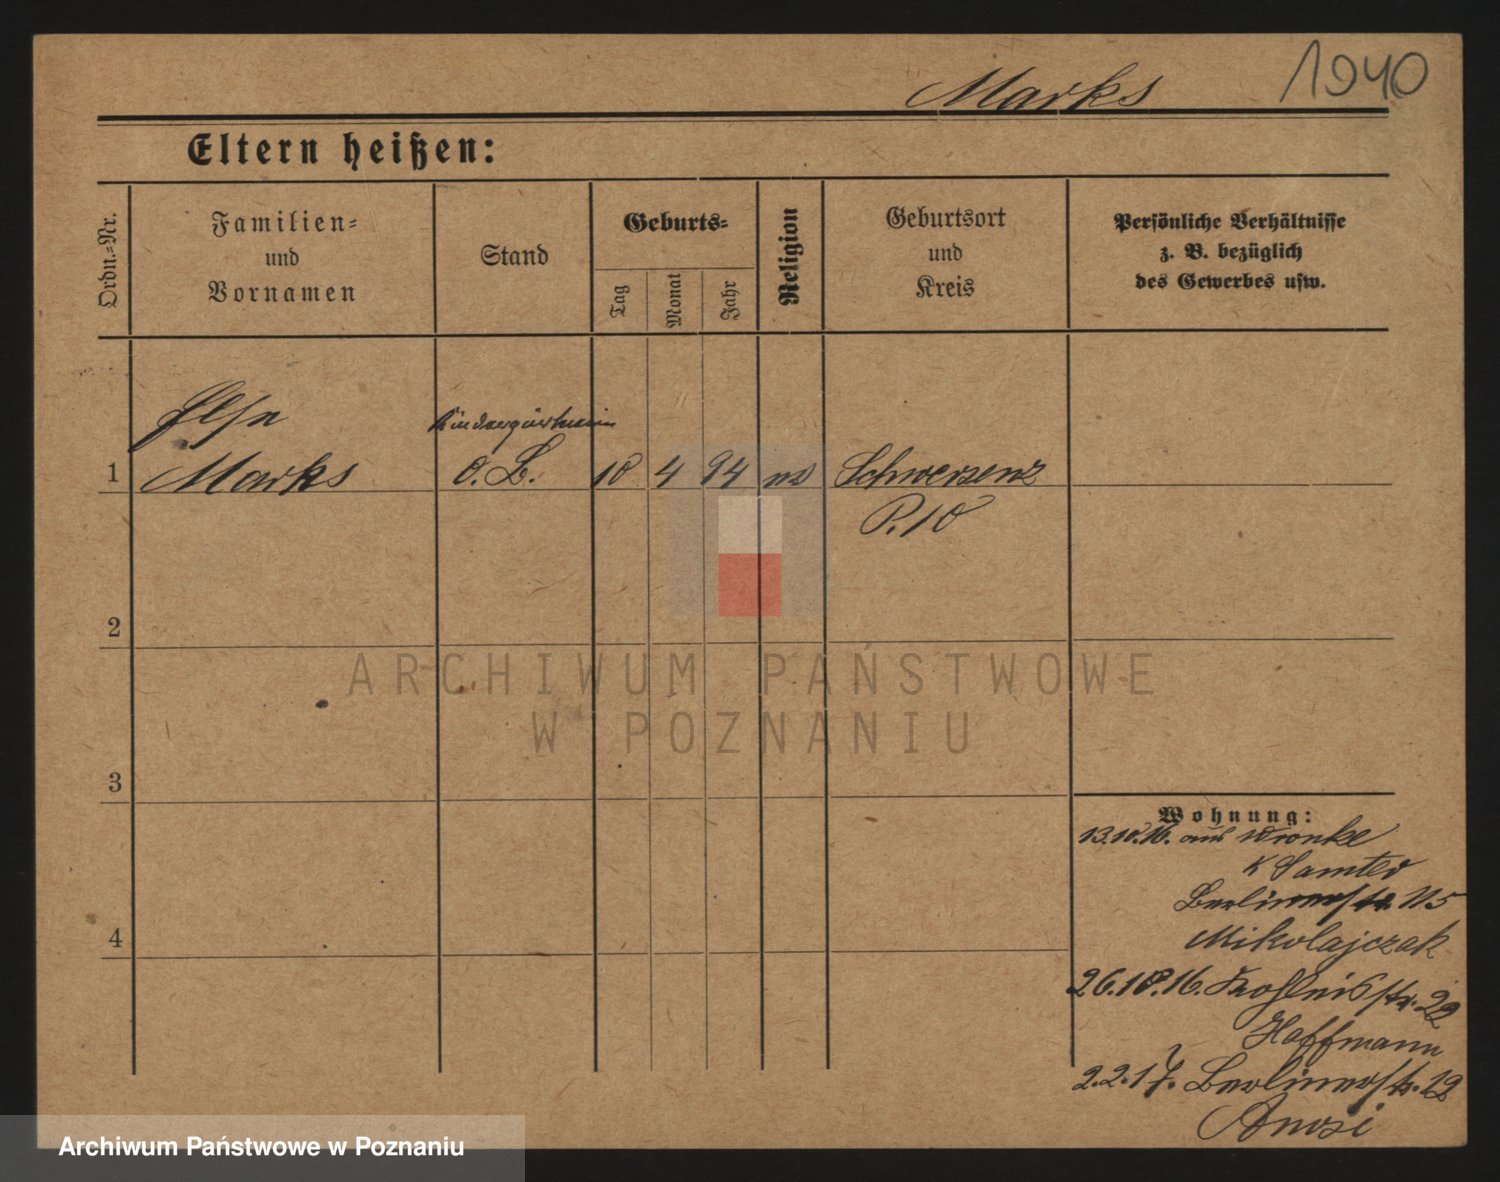 Marks 1940
Eltern heißen:
Ordn.-Nr.
Familien-
und
Vornamen
Stand
Geburts-
Tag
Monat
Jahr
Religion
Geburtsort
und
Kreis
Persönliche Verhältnisse
z. B. bezüglich
des Gewerbes usw.
1
Else
Marks
Kindergärtnerin
o. B.
10 4 94 ms
Schwersenz
P. 10
2
3
4
Wohnung:
13.10.16. aus Wronke
K Samter
Berlinerstr. 115
Mikolajczak
26.10.16. str. 22
Hoffmann
2.2.17. Berlinerstr. 12
ARCHIWUM PAŃSTWOWE
W POZNANIU
Archiwum Państwowe w Poznaniu